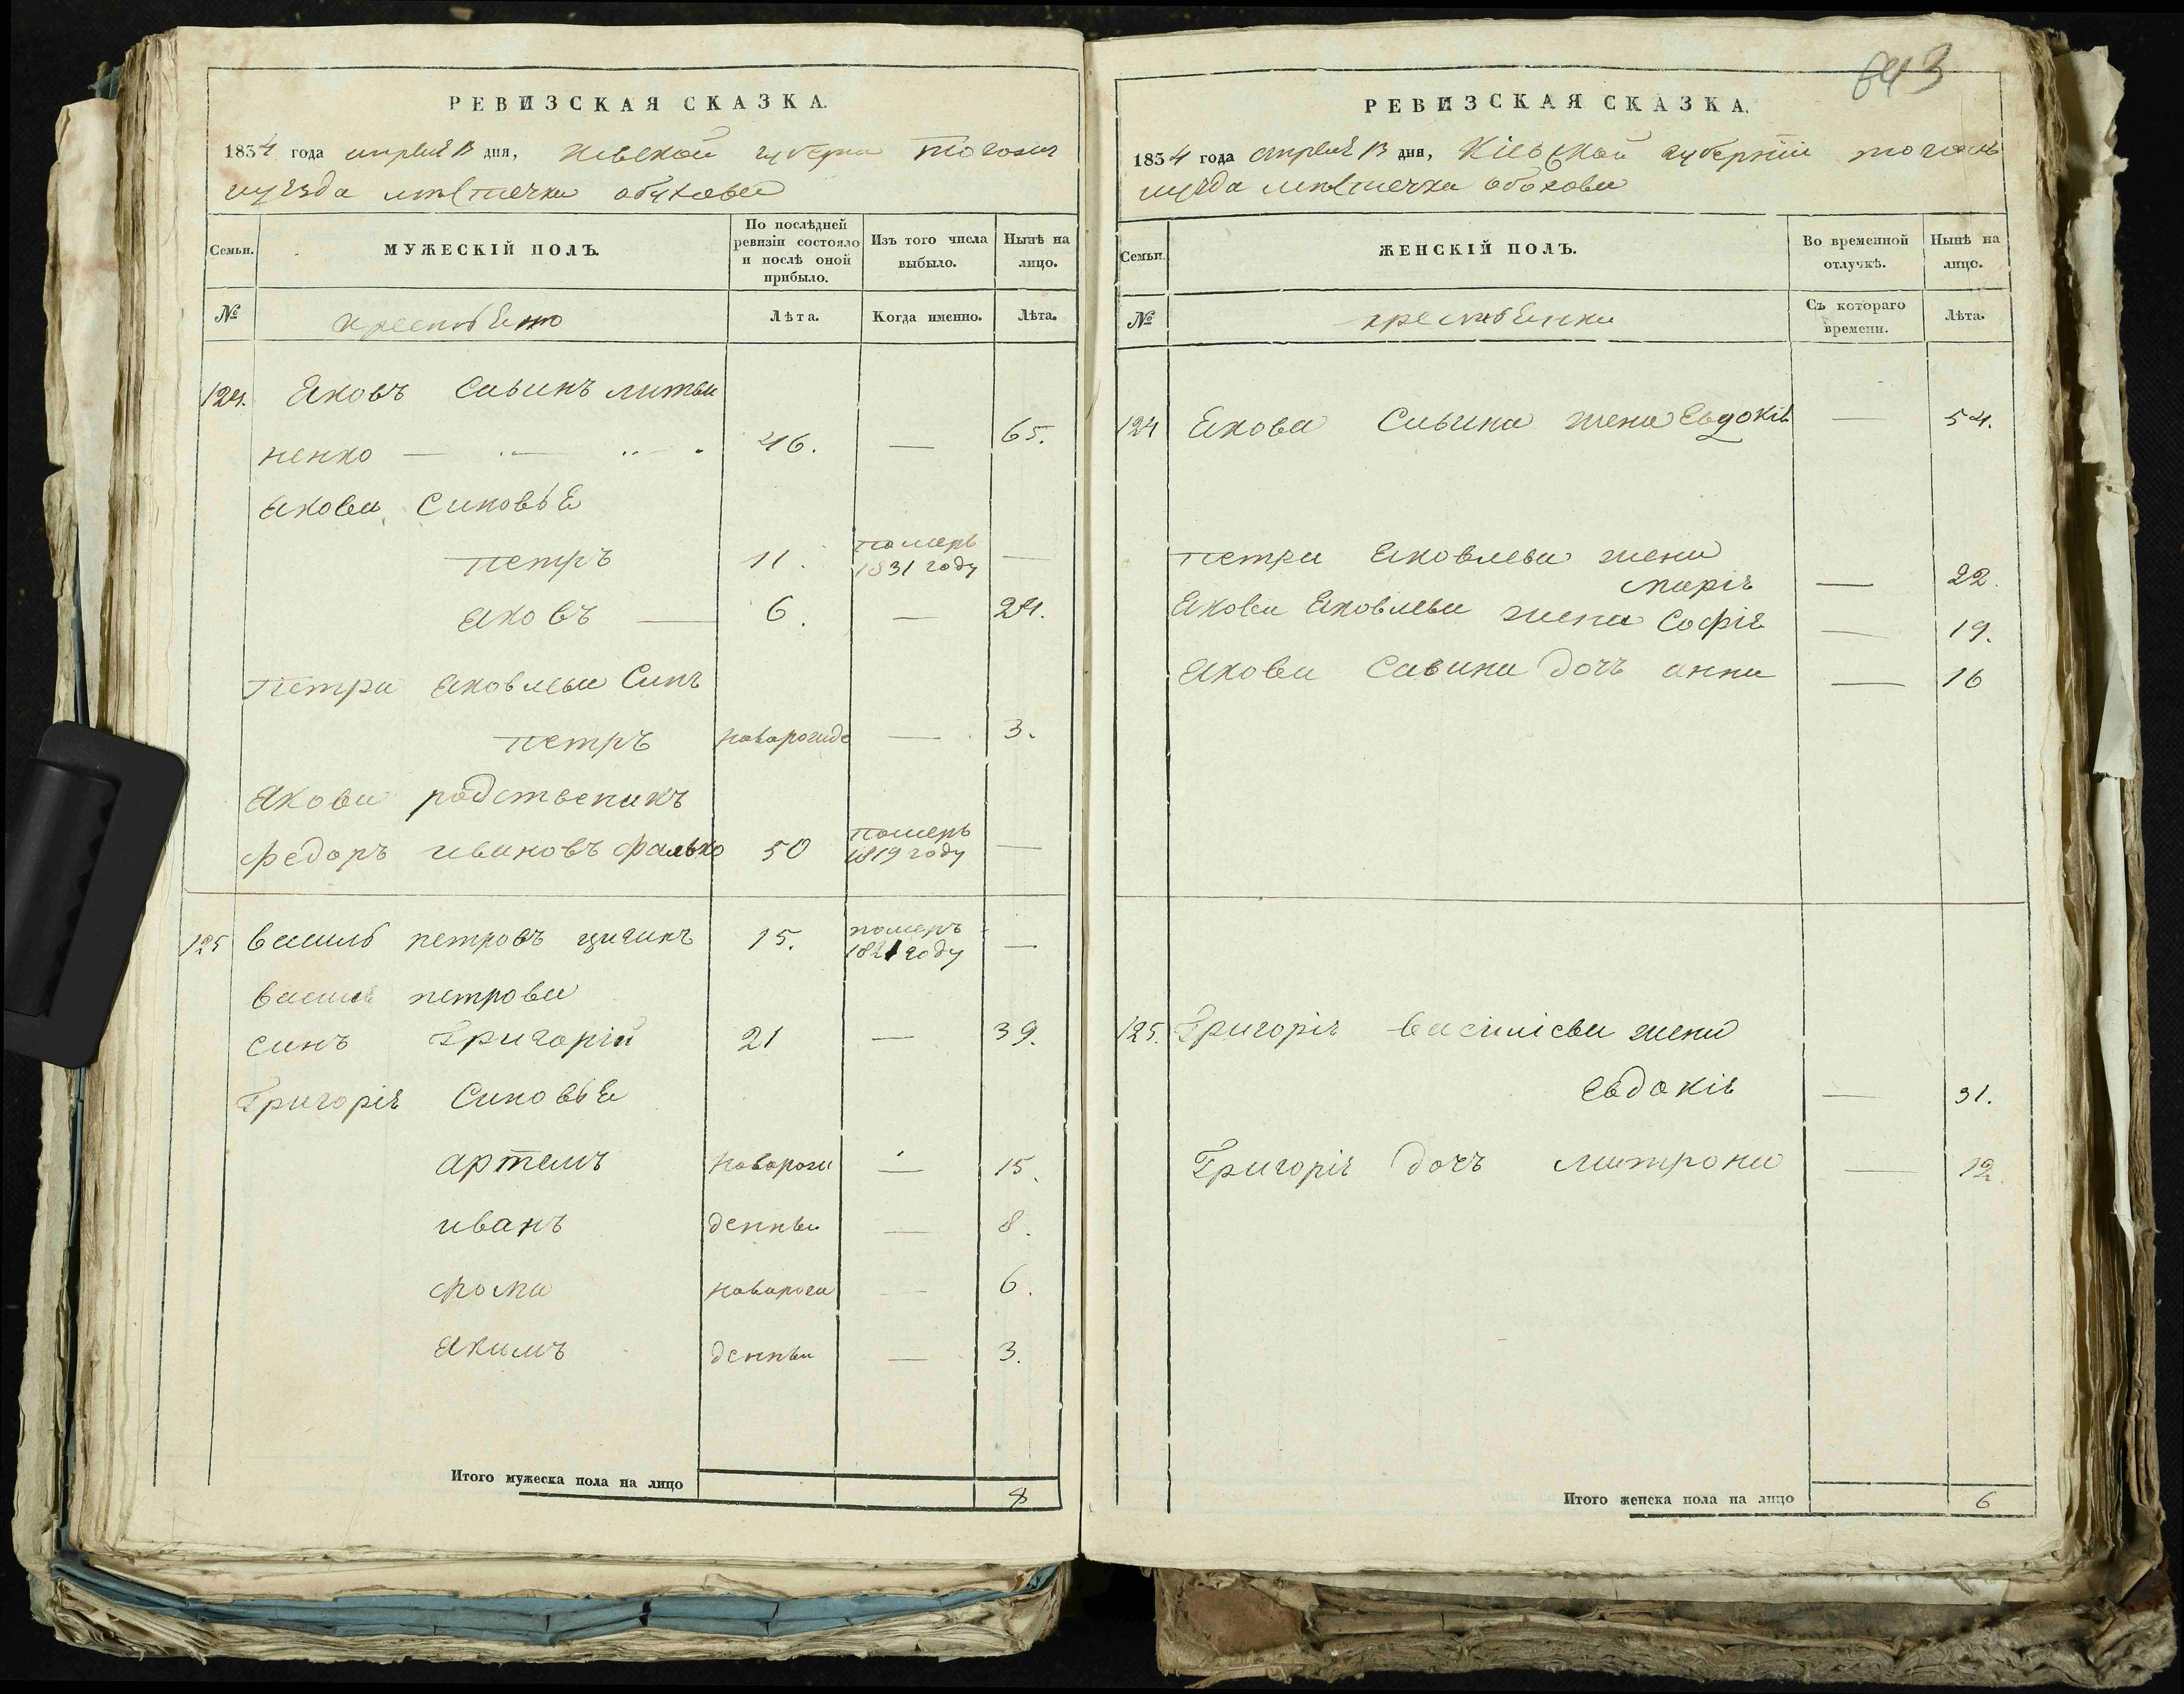 РЕВИЗСКАЯ СКАЗКА.
1834 года апреля 13 дня, Киевской губерни тогожъ
уезда мѣстечка обухова
Семьи.
МУЖЕСКІЙ ПОЛЪ.
По послѣдней ревизіи состояло и послѣ оной прибыло.
Изъ того числа выбыло.
Нынѣ на лицо.
№
Лѣта.
Когда именно.
Лѣта.
124. Яковъ Савинъ литви
ненко — 46. — 65.
Якова Синовья
петръ 11. померъ 1831 году —
Яковъ — 6. — 24.
Петра Яковлева Синъ
петръ новорожде — 3.
Якова родственикъ
федоръ ивановъ фалько 50 померъ 1819 году —
125 василь петровъ циганъ 15. померъ 1821 году —
василя петрова
синъ Григорій 21 — 39.
Григорія Синовья
артемъ новорож — 15.
иванъ денны — 8.
фома новорож — 6.
Якимъ денны — 3.
Итого мужеска пола на лицо 8
643
РЕВИЗСКАЯ СКАЗКА.
1834 года апреля 13 дня, Кіевской губерніи тогожъ
уезда мѣстечка обохова
Семьи.
ЖЕНСКІЙ ПОЛЪ.
Во временной отлучкѣ.
Нынѣ на лицо.
№
Съ котораго времени.
Лѣта.
124 Якова Савина жена Евдокія — 54.
петра Яковлева жена
марія — 22.
Якова Яковлева жена Софія — 19.
Якова Савина дочъ анна — 16
125. Григорія васіліева жена
Евдокія — 31.
Григорія дочъ митрона — 12.
Итого женска пола на лицо 6